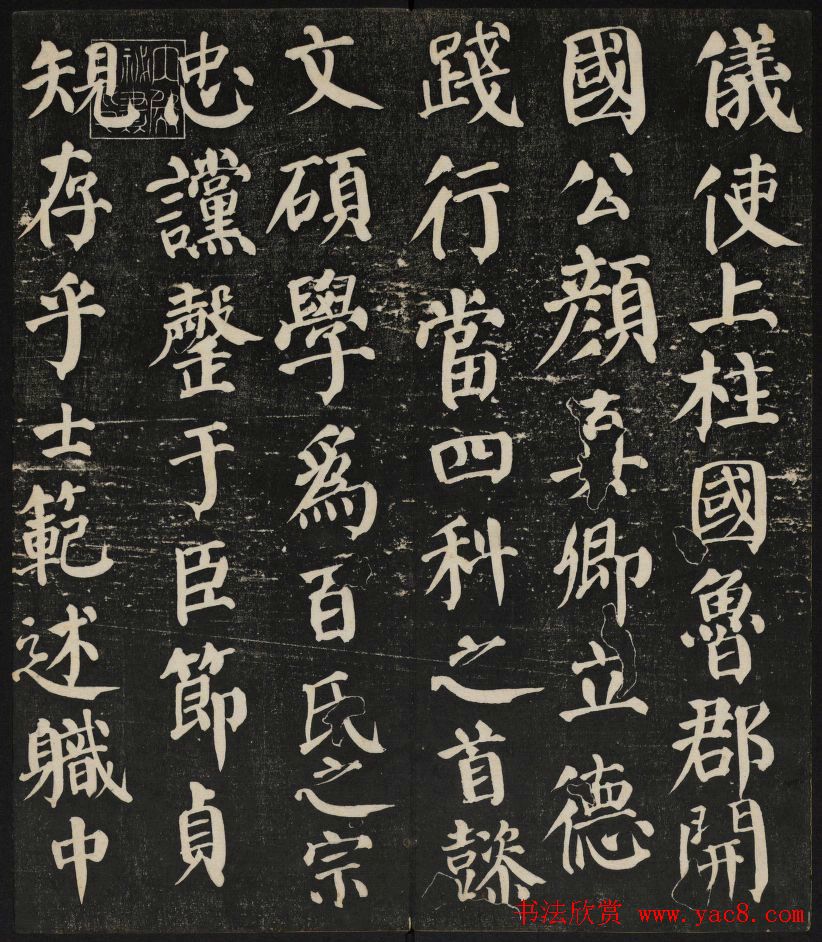 儀使上柱國魯郡開
國公顏真卿立德
踐行當四科之首懿
文碩學爲百氏之宗
忠讜罄于臣節貞
規存乎士範述職中
书法欣赏 www.yac8.com